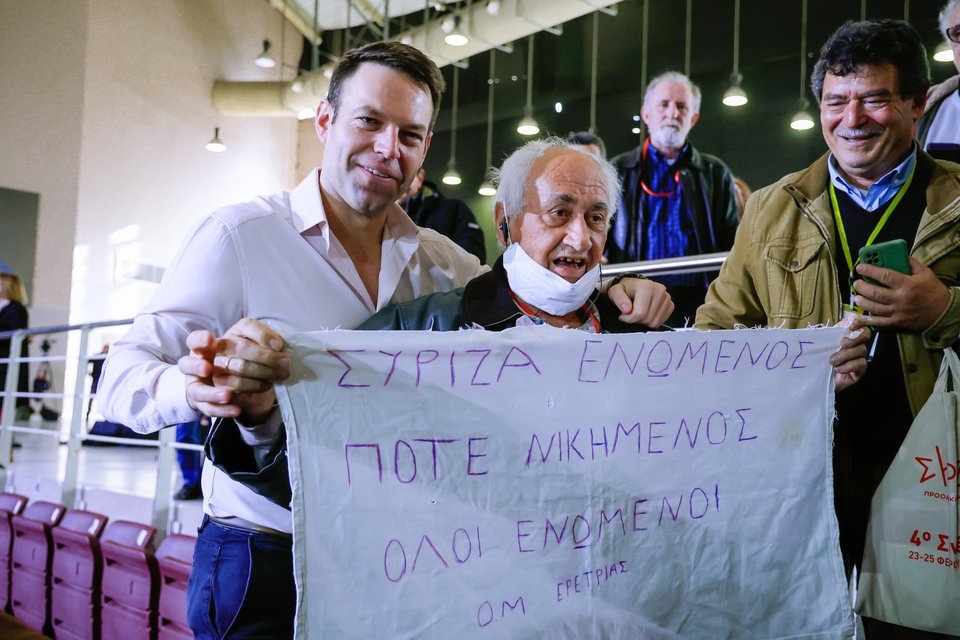 ΣΥΡΙΖΑ ΕΝΩΜΕΝΟΣ
ΠΟΤΕ ΝΙΚΗΜΕΝΟΣ
ΟΛΟΙ ΕΝΩΜΕΝΟΙ
ΟΜ ΕΡΕΤΡΙΑΣ
4º
23-25